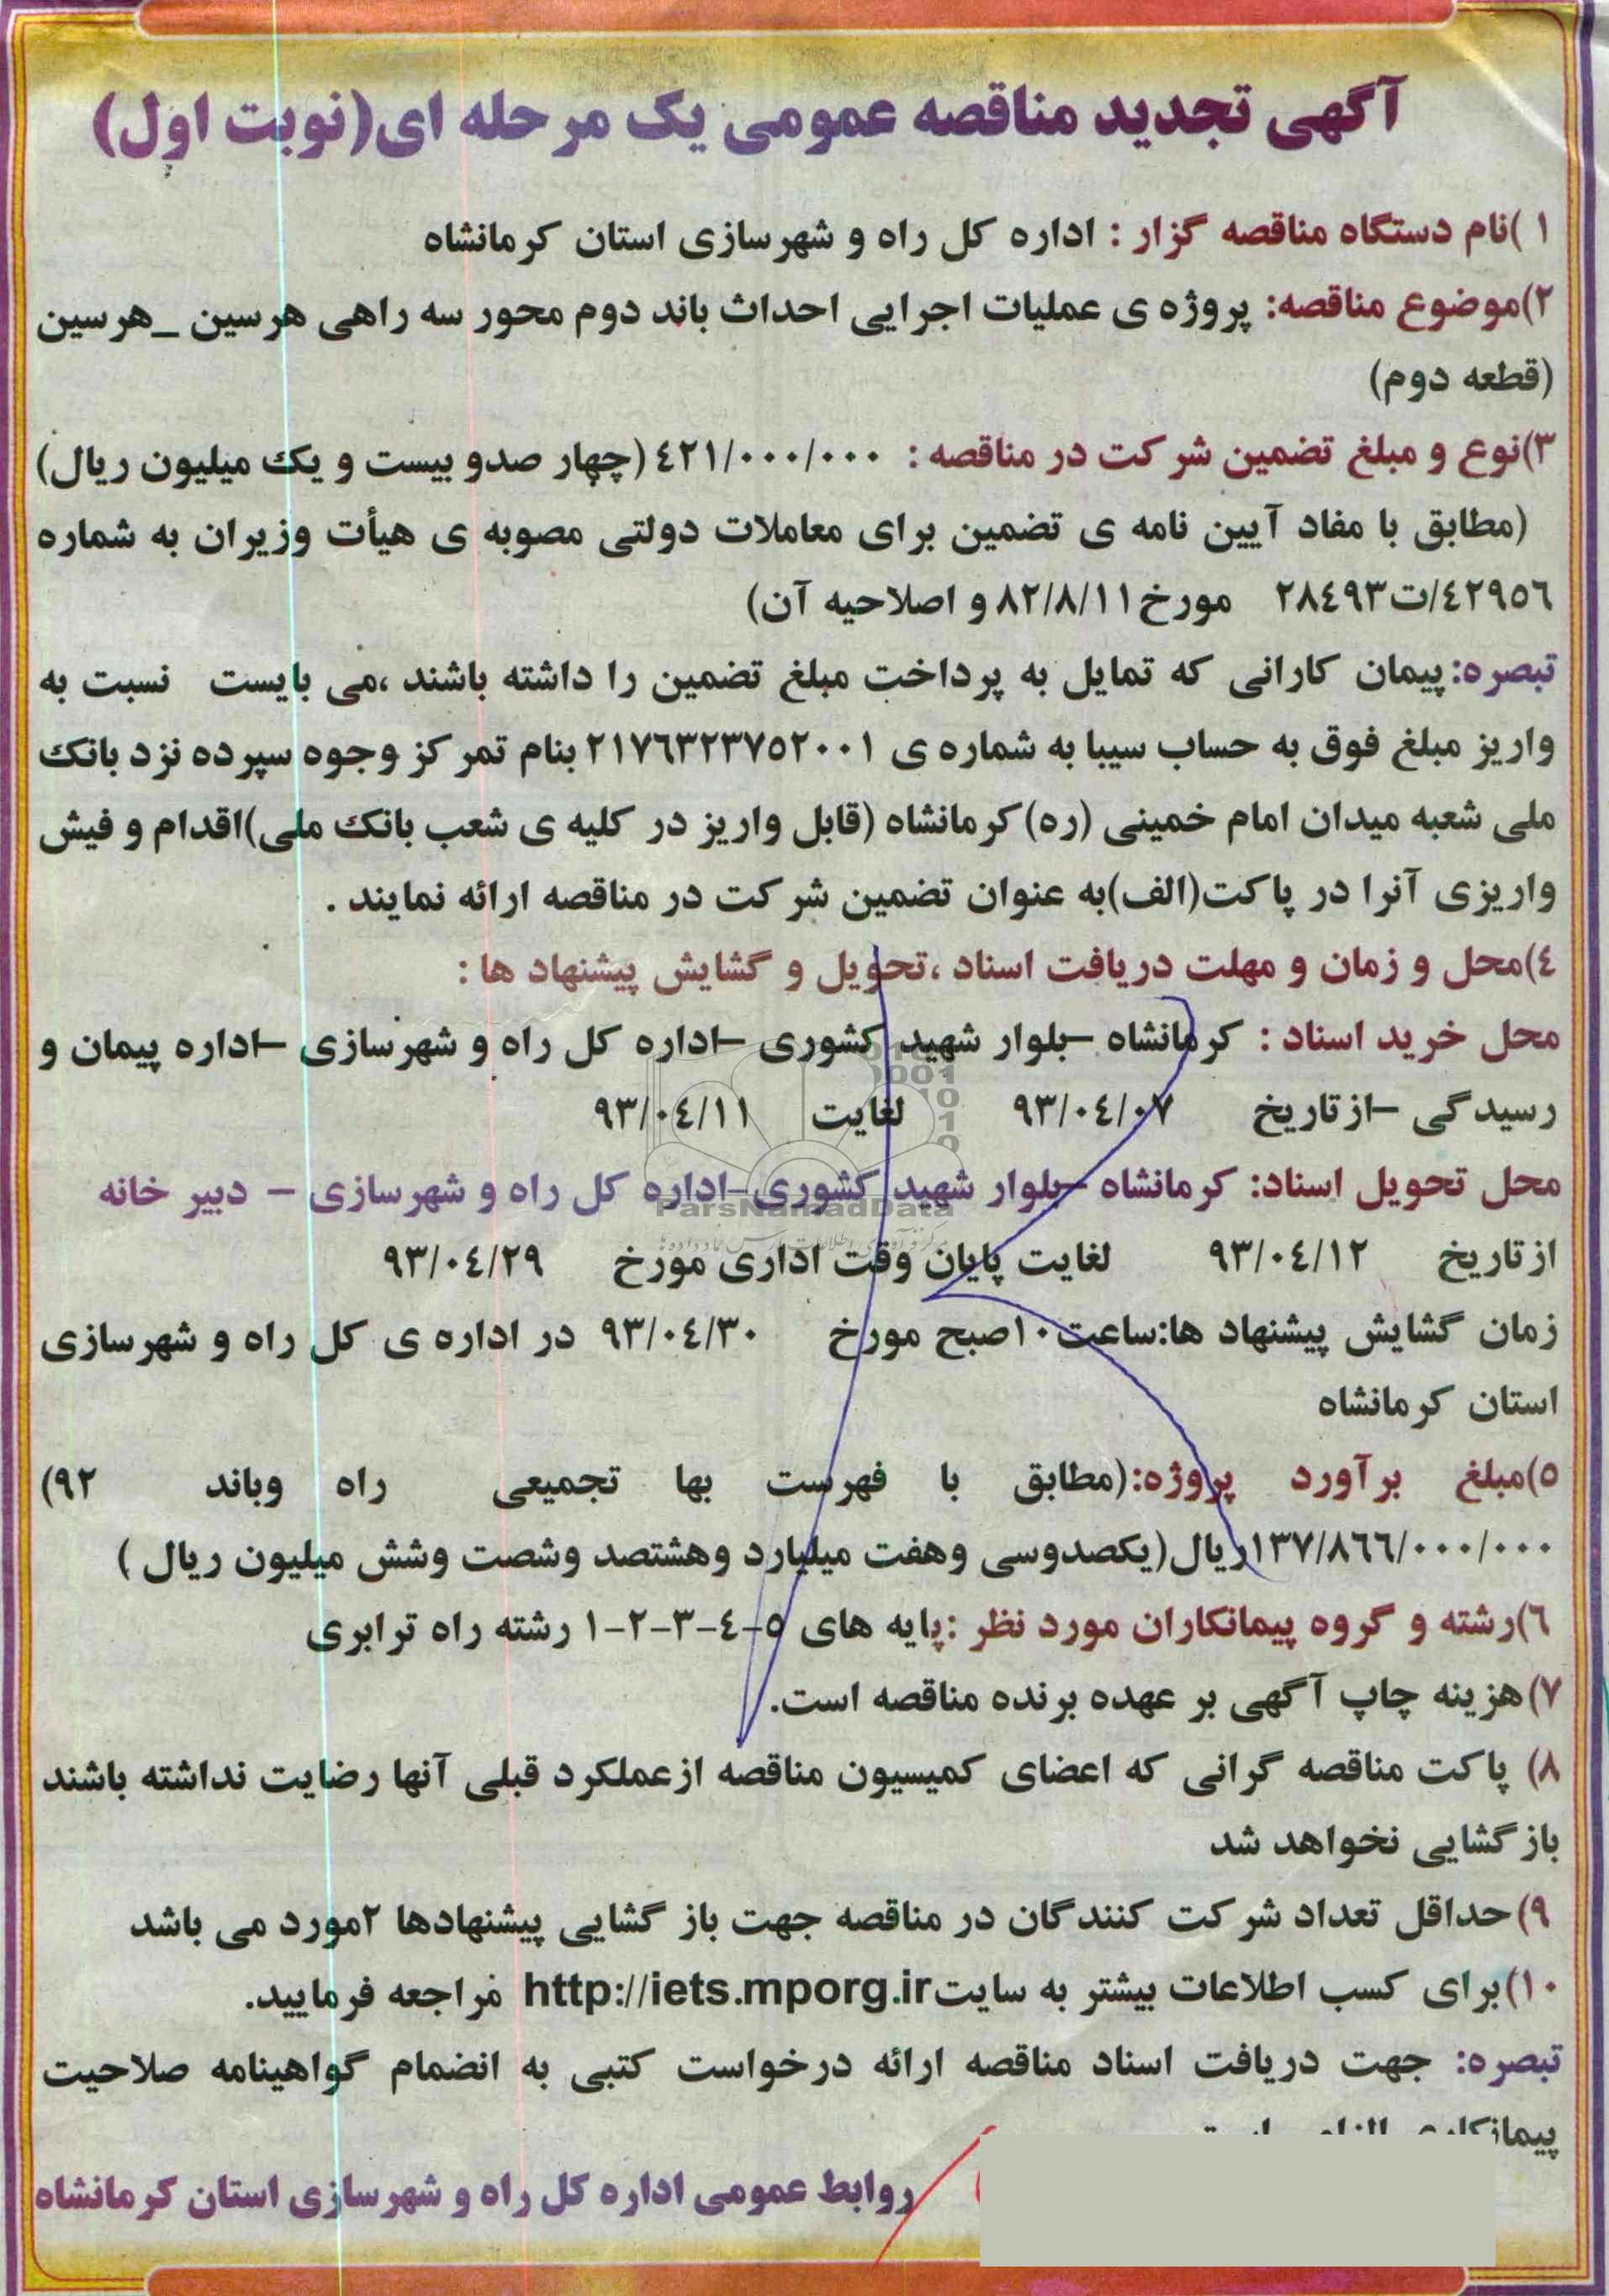 آگهی تجدید مناقصه عمومی یک مرحله ای(نوبت اول)
۱)نام دستگاه مناقصه گزار : اداره کل راه و شهرسازی استان کرمانشاه
۲)موضوع مناقصه: پروژه ی عملیات اجرایی احداث باند دوم محور سه راهی هرسین _هرسین
(قطعه دوم)
۳)نوع و مبلغ تضمین شرکت در مناقصه : ۴۲۱/۰۰۰/۰۰۰ (چهار صدو بیست و یک میلیون ریال)
(مطابق با مفاد آیین نامه ی تضمین برای معاملات دولتی مصوبه ی هیأت وزیران به شماره
۴۲۹۵۶/ت۲۸۴۹۳ مورخ ۸۲/۸/۱۱ و اصلاحیه آن)
تبصره: پیمان کارانی که تمایل به پرداخت مبلغ تضمین را داشته باشند ،می بایست نسبت به
واریز مبلغ فوق به حساب سیبا به شماره ی ۲۱۷۶۳۲۳۷۵۲۰۰۱ بنام تمرکز وجوه سپرده نزد بانک
ملی شعبه میدان امام خمینی (ره) کرمانشاه (قابل واریز در کلیه ی شعب بانک ملی)اقدام و فیش
واریزی آنرا در پاکت(الف)به عنوان تضمین شرکت در مناقصه ارائه نمایند .
۴)محل و زمان و مهلت دریافت اسناد ،تحویل و گشایش پیشنهاد ها :
محل خرید اسناد : کرمانشاه –بلوار شهید کشوری –اداره کل راه و شهرسازی –اداره پیمان و
رسیدگی –از تاریخ ۹۳/۰۴/۰۷ لغایت ۹۳/۰۴/۱۱
محل تحویل اسناد: کرمانشاه –بلوار شهید کشوری–اداره کل راه و شهرسازی – دبیر خانه
ParsNamadData
از تاریخ ۹۳/۰۴/۱۲ لغایت پایان وقت اداری مورخ ۹۳/۰۴/۲۹
زمان گشایش پیشنهاد ها:ساعت ۱۰صبح مورخ ۹۳/۰۴/۳۰ در اداره ی کل راه و شهرسازی
استان کرمانشاه
۵)مبلغ برآورد پروژه:(مطابق با فهرست بها تجمیعی راه وباند ۹۲)
۱۳۷/۸۶۶/۰۰۰/۰۰۰ریال(یکصدوسی وهفت میلیارد وهشتصد وشصت وشش میلیون ریال )
۶)رشته و گروه پیمانکاران مورد نظر :پایه های ۵-۴-۳-۲-۱ رشته راه ترابری
۷)هزینه چاپ آگهی بر عهده برنده مناقصه است.
۸) پاکت مناقصه گرانی که اعضای کمیسیون مناقصه ازعملکرد قبلی آنها رضایت نداشته باشند
بازگشایی نخواهد شد
۹)حداقل تعداد شرکت کنندگان در مناقصه جهت باز گشایی پیشنهادها ۲مورد می باشد
۱۰)برای کسب اطلاعات بیشتر به سایت http://iets.mporg.ir مراجعه فرمایید.
تبصره: جهت دریافت اسناد مناقصه ارائه درخواست کتبی به انضمام گواهینامه صلاحیت
روابط عمومی اداره کل راه و شهرسازی استان کرمانشاه